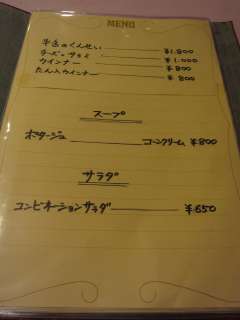 MENU
半古のくんせい ¥1.800
チーズ・サラミ ¥1.000
ウインナー ¥800
たん入ウインナー ¥800
スープ
ポタージュ コーンクリーム ¥800
サラダ
コンビネーションサラダ ¥650